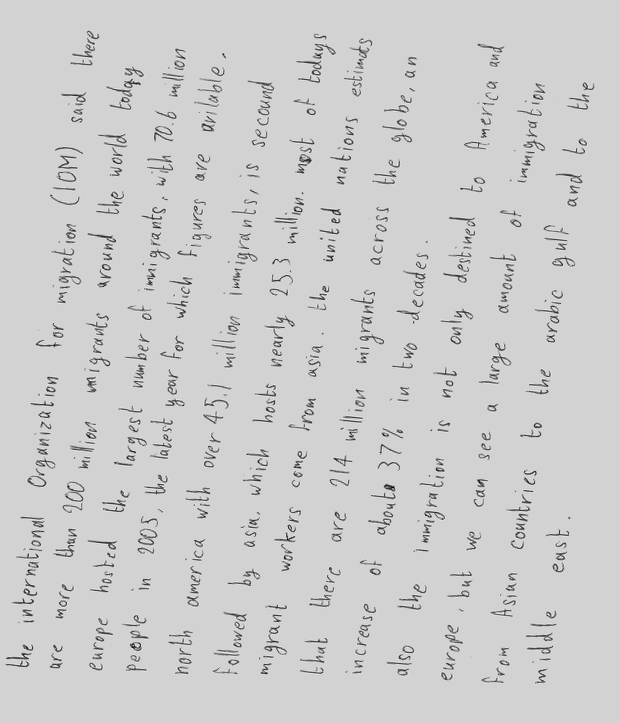 the international Organization for migration (IOM) said there
are more than 200 million migrants around the world today
europe hosted the largest number of immigrants, with 70.6 million
people in 2005, the latest year for which figures are avilable.
north america with over 45.1 million immigrants, is second
followed by asia, which hosts nearly 25.3 million. most of todays
migrant workers come from asia. the united nations estimats
that there are 214 million migrants across the globe, an
increase of about 37% in two decades.
also the immigration is not only destined to America and
europe, but we can see a large amount of immigration
from Asian countries to the arabic gulf and to the
middle east.